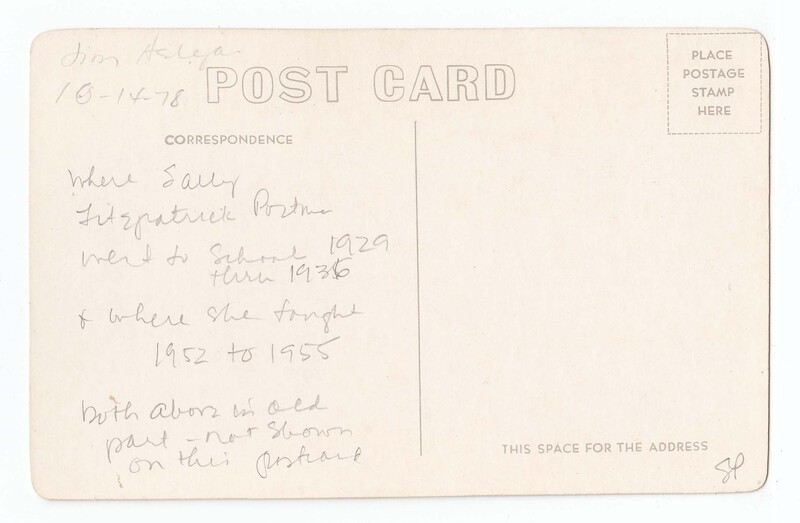 10-14-78
POST CARD
PLACE
POSTAGE
STAMP
HERE
CORRESPONDENCE
Where Sally
Fitzpatrick Postma
went to School 1929
thru 1936
& where she taught
1952 to 1955
both above in old
part - not shown
on this postcard
THIS SPACE FOR THE ADDRESS
SP